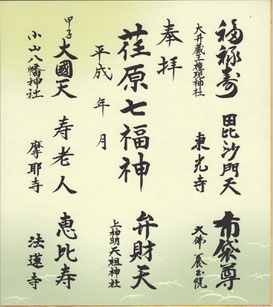 福禄寿
大井蔵王権現神社
毘沙門天
東光寺
布袋尊
大佛養玉院
奉拝
荏原七福神
平成 年 月
弁財天
上神明天祖神社
甲子
大國天
小山八幡神社
寿老人
摩耶寺
恵比寿
法蓮寺